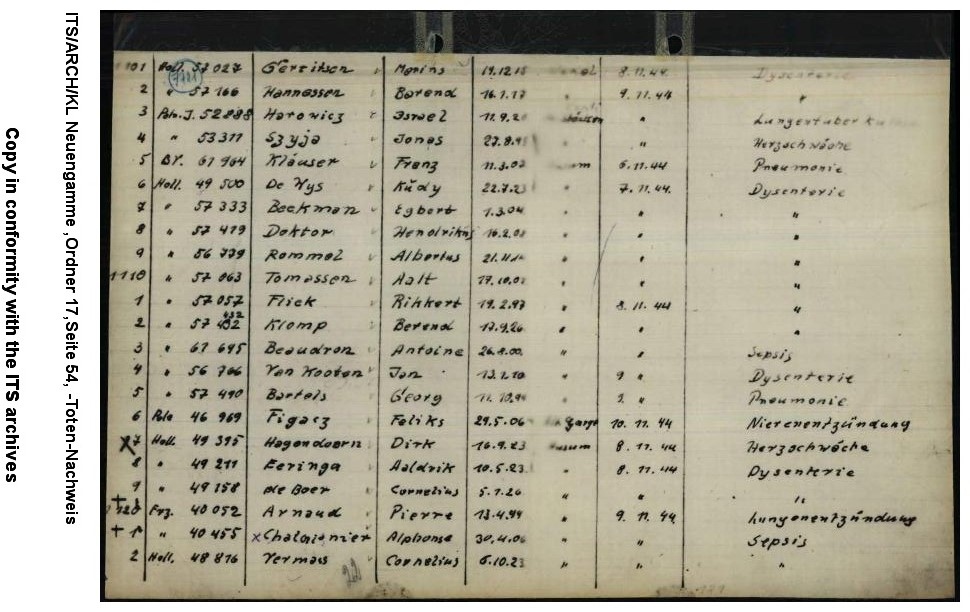 Copy in conformity with the ITS archives
ITS/ARCH/KL Neuengamme ,Ordner 17,Seite 54, -Toten-Nachweis
1101 Holl. 57 027 Gerritsen Marins 19.12.15 8.11.44 Dysenterie
2 " 57 166 Hannessen Barend 16.1.17 9.11.44 "
3 Poln.J. 52888 Horowicz Israel 11.9.2 " Lungentuberk
4 " 53311 Szyja Jonas 27.8.9 " " Herzschwäche
5 BV. 61 964 Kläuser Franz 11.3.02 um 6.11.44 Pneumonie
6 Holl. 49 500 De Nys Rudy 22.7.23 " 7.11.44. Dysenterie
7 " 57 333 Beekman Egbert 1.3.04 " " "
8 " 57 479 Doktor Hendrikns 16.2.02 " " "
9 " 56 779 Rommel Albertus 21. " "
1110 " 57 063 Tomassen Aalt 17.10.02 " "
1 " 57 057 Flick Rihkert 19.2.97 " 8.11.44 "
2 " 57 432 Klomp Berend 17.9.26 " " "
3 " 61 695 Beaudron Antoine 26.8.00. " " Sepsis
4 " 56 766 Van Kooten Jan 13.2.10 " 9 " Dysenterie
5 " 57 490 Bartels Georg 11.10.94 " 9. " Pneumonie
6 Pole 46 969 Figacz Feliks 29.5.06 10.11.44 Nierenentzündung
x7 Holl. 49 395 Hagendoorn Dirk 16.9.23 um 8.11.44 Herzschwäche
8 " 49 211 Eeringa Aaldrik 10.5.23 " 8.11.44 Dysenterie
9 " 49 158 de Boer Cornelius 5.7.26 " " "
+ 1120 Frz. 40 052 Arnaud Pierre 13.4.99 " 9.11.44 Lungenentzündung
+ 1 " 40 455 x Chalgienier Alphonse 30.4.06 " " Sepsis
2 Holl. 48 876 Vermaas Cornelius 6.10.23 " " "